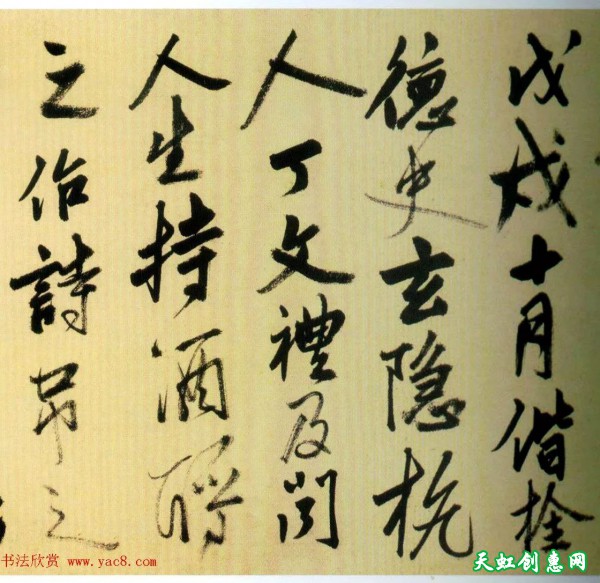 戊戌十月偕栓
德史玄隐杭
人丁文禮及閑
人生持酒酹
之詩吊之
书法欣赏 www.yac8.com
天虹创惠网